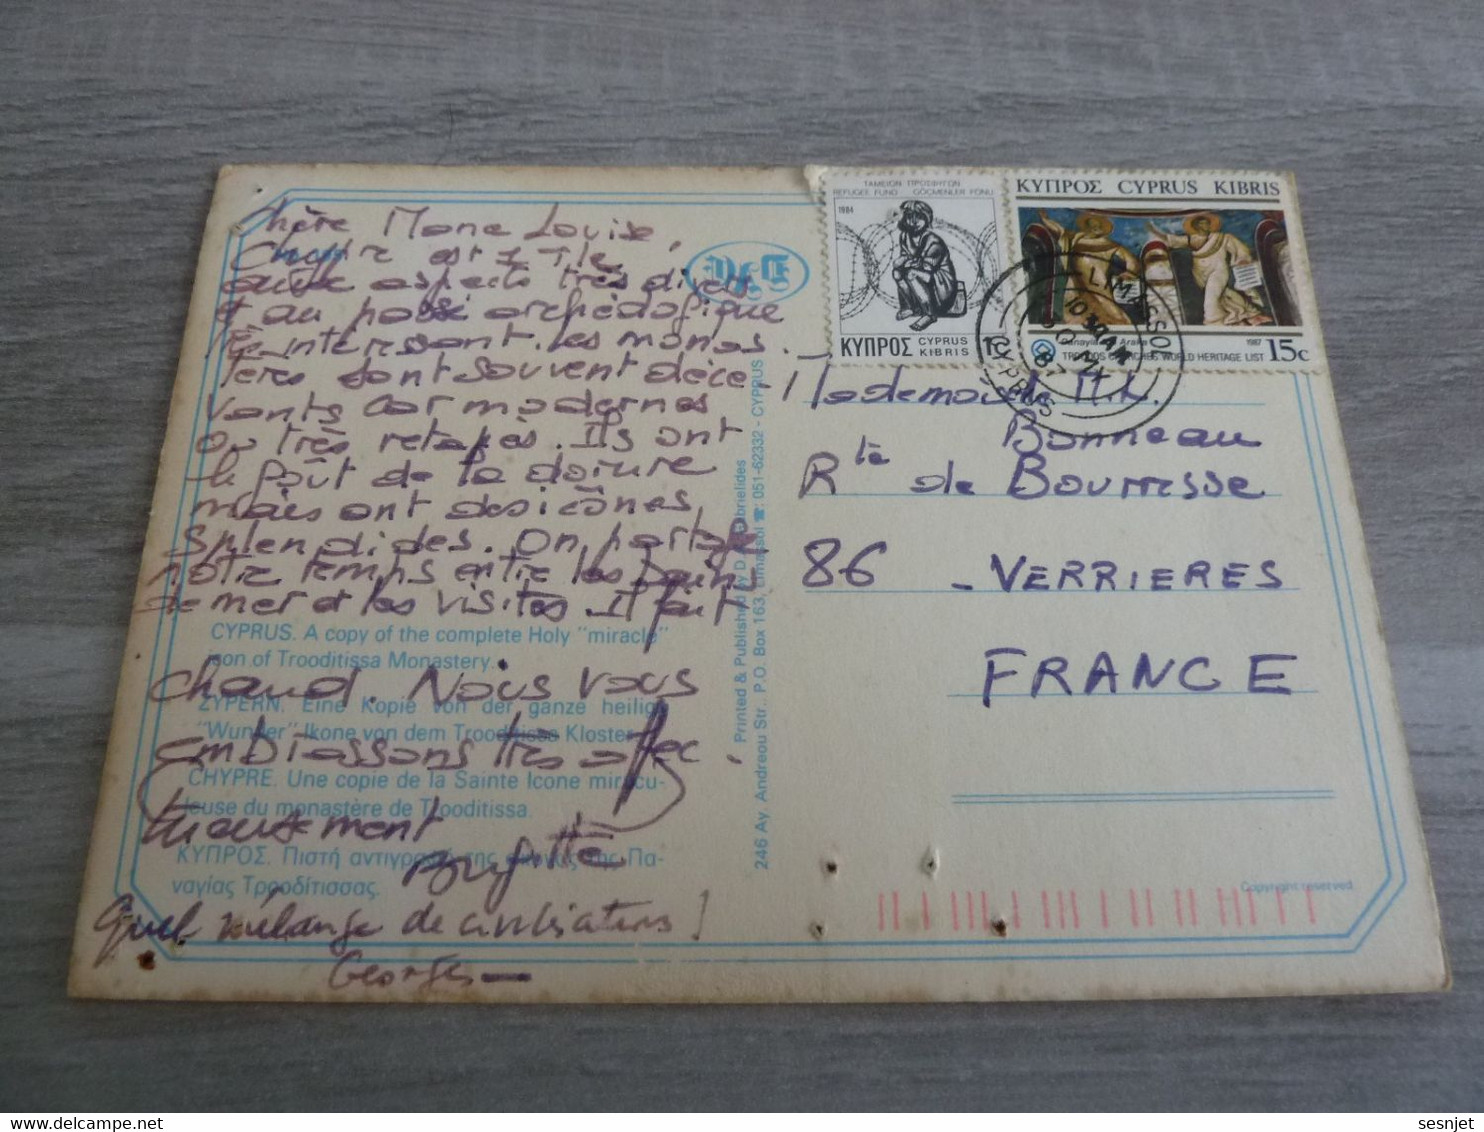 Chère Marie Louise,
Chypre est 1 île
aux aspects très divers
et au passé archéologique
très intéressant. les monas-
tères sont souvent déce-
vants car modernes
ou très retapés. Ils ont
le goût de la dorure
mais ont des icônes
splendides. On partage
notre temps entre les bains
de mer et les visites. Il fait
chaud. Nous vous
embrassons très affec-
tueusement
Brigitte
Quel mélange de civilisations !
Georges
CYPRUS. A copy of the complete Holy "miracle"
icon of Trooditissa Monastery.
ZYPERN. Eine Kopie von der ganze heilige
"Wunder" Ikone von dem Trooditissa Kloster
CHYPRE. Une copie de la Sainte Icone miracu-
leuse du monastère de Trooditissa.
ΚΥΠΡΟΣ. Πιστή αντιγραφή της εικόνας της Πα-
ναγίας Τροοδίτισσας.
Printed & Published by D.
246 Ay. Andreou Str., P.O. Box 163, Limassol ☎: 051-62332 - CYPRUS
ΤΑΜΕΙΟΝ ΠΡΟΣΦΥΓΩΝ
REFUGEE FUND GÖÇMENLER FONU
1984
ΚΥΠΡΟΣ CYPRUS KIBRIS 1c
ΚΥΠΡΟΣ CYPRUS KIBRIS
1987
TROODOS CHURCHES WORLD HERITAGE LIST 15c
LIMASSOL
CYPRUS
Mademoiselle M. L.
Bonneau
Rte de Bouresse
86 - VERRIERES
FRANCE
Copyright reserved
sesnjet